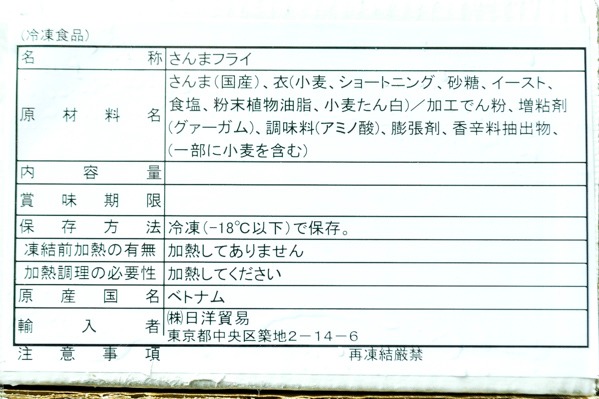 (冷凍食品)
名称 さんまフライ
原材料名 さんま(国産)、衣(小麦、ショートニング、砂糖、イースト、
食塩、粉末植物油脂、小麦たん白)/加工でん粉、増粘剤
(グァーガム)、調味料(アミノ酸)、膨張剤、香辛料抽出物、
(一部に小麦を含む)
内容量
賞味期限
保存方法 冷凍(-18℃以下)で保存。
凍結前加熱の有無 加熱してありません
加熱調理の必要性 加熱してください
原産国名 ベトナム
輸入者 ㈱日洋貿易
東京都中央区築地2-14-6
注意事項 再凍結厳禁